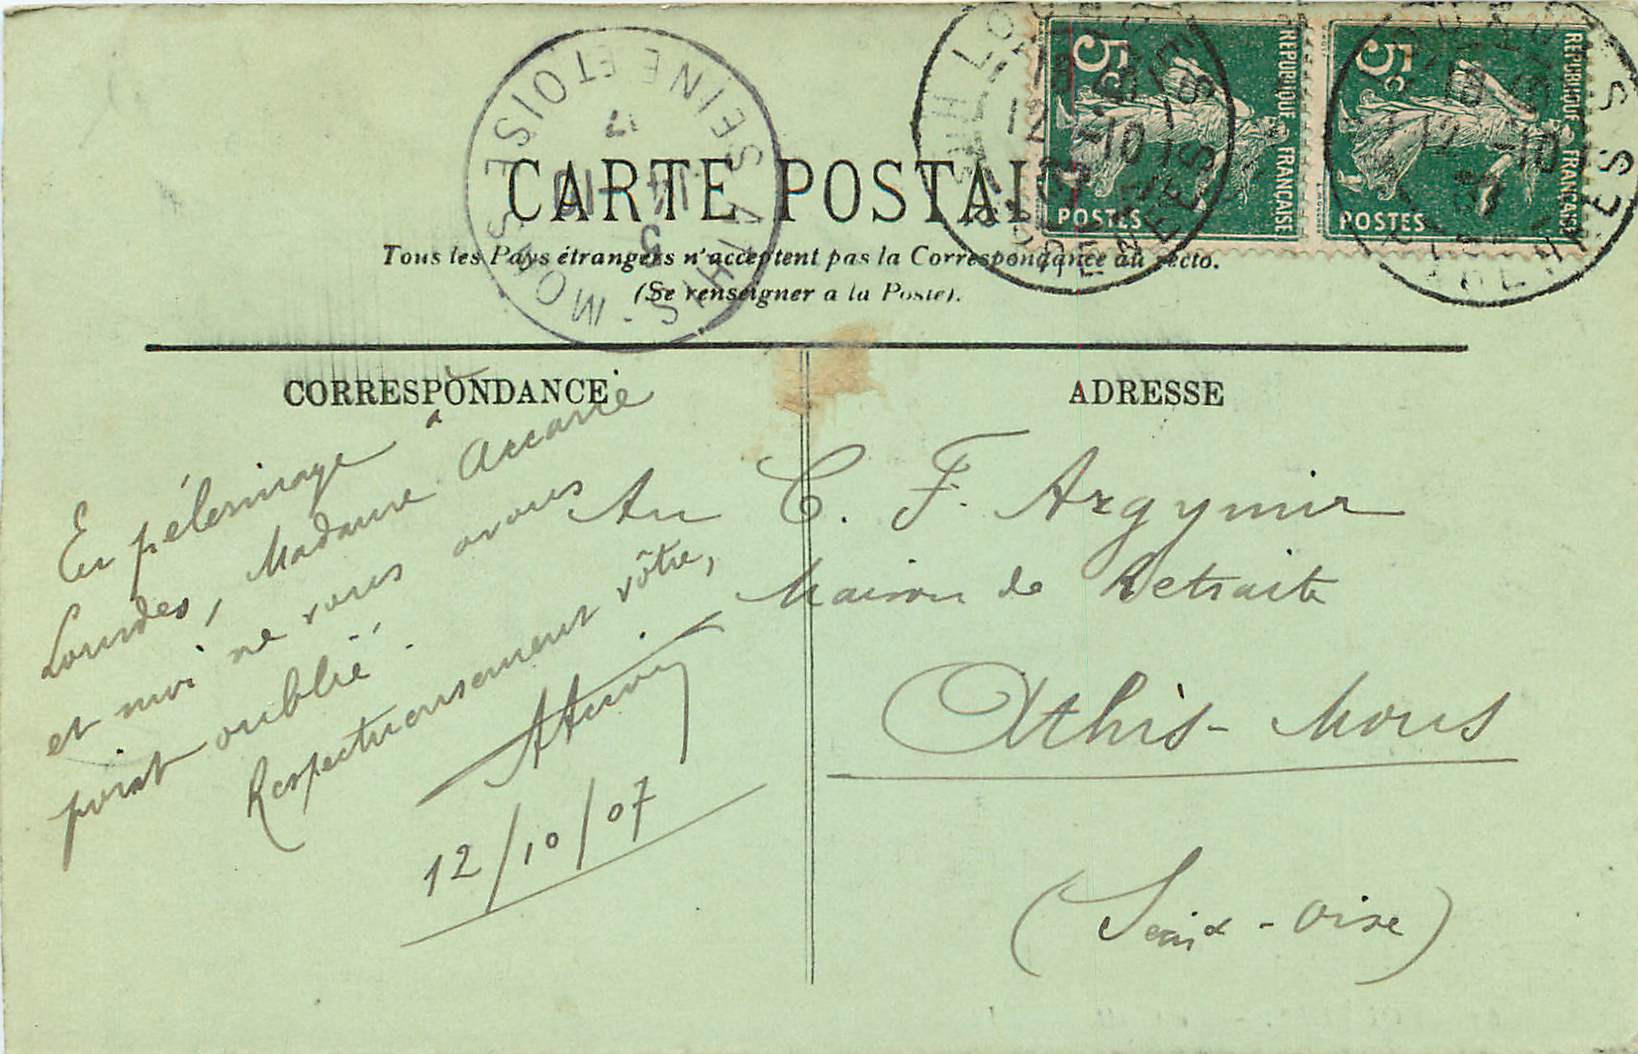 CARTE POSTALE
Tous les Pays étrangers n'acceptent pas la Correspondance au recto.
(Se renseigner a la Poste).
5c
REPUBLIQUE FRANÇAISE
POSTES
5c
REPUBLIQUE FRANÇAISE
POSTES
ATHIS-MONS SEINE ET OISE
CORRESPONDANCE
En pélerinage à
Lourdes, Madame Accarie
et moi ne vous avons
point oublié.
Respectueusement vôtre,
12/10/07
ADRESSE
Au C. F. Argymir
Maison de Retraite
Athis-Mons
(Seine & - Oise)